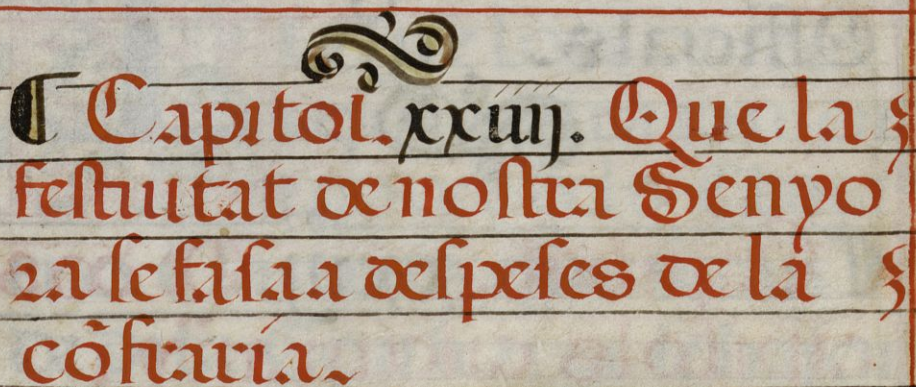 ¶ Capitol. xxiiij. Que la
festiuitat de nostra Senyo
ra se fasa a despeses de la
cõfraria.